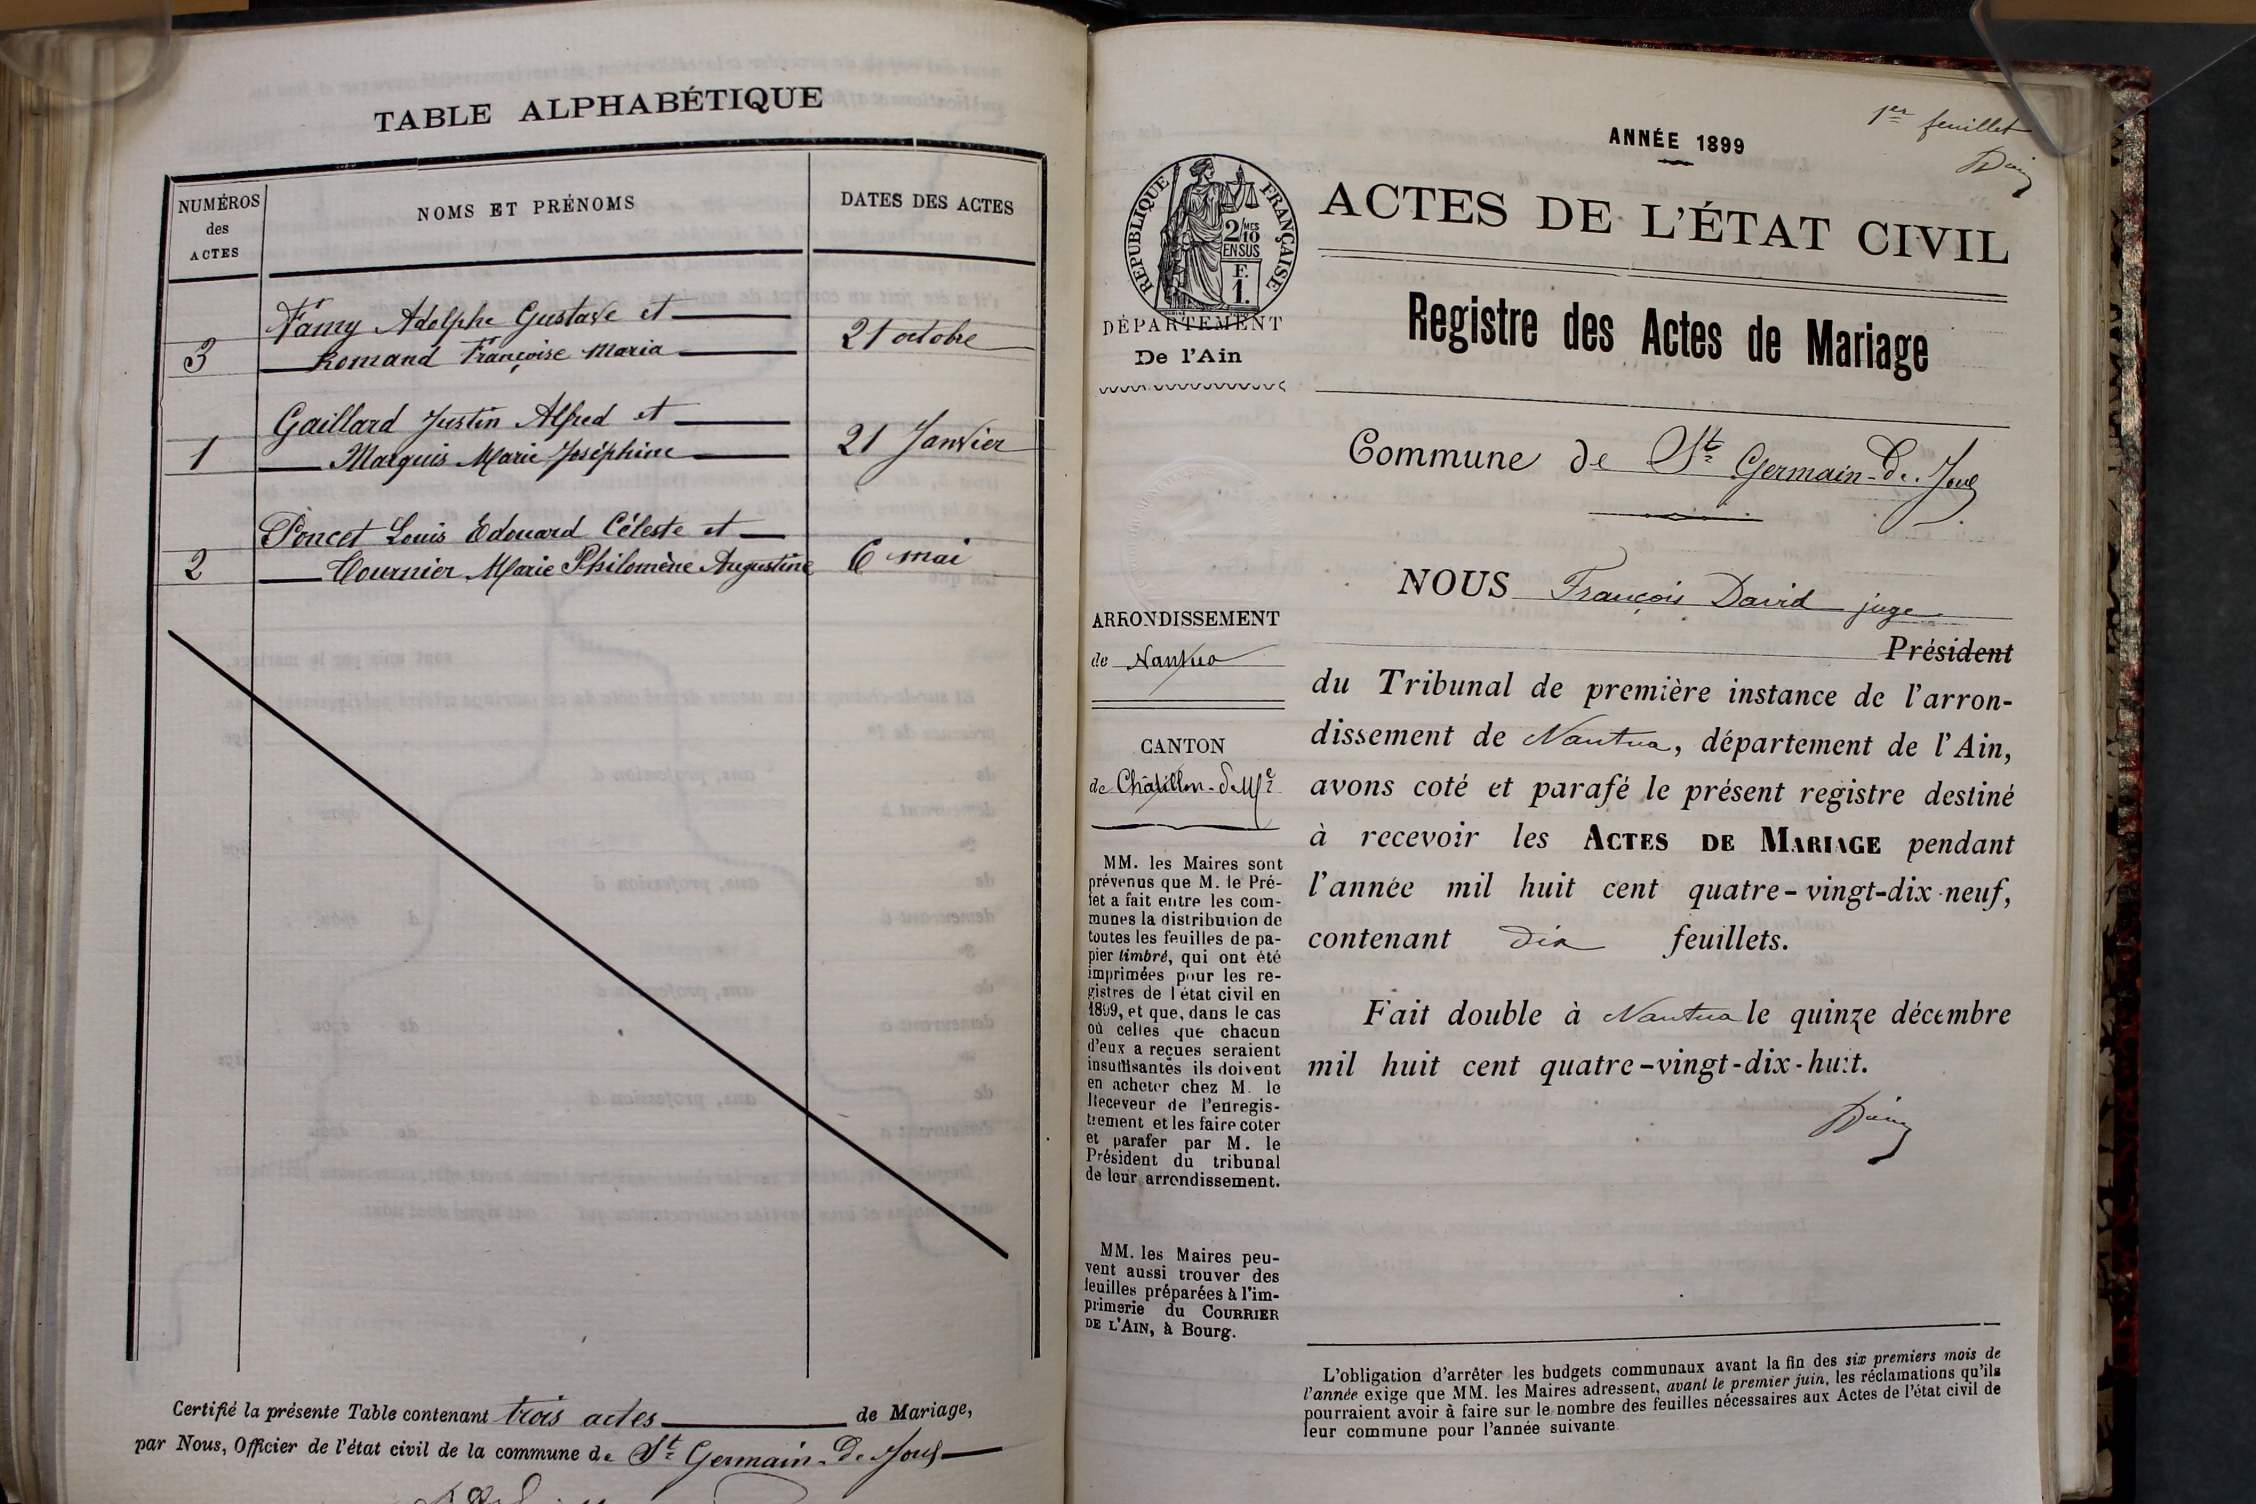 TABLE ALPHABÉTIQUE
NUMÉROS
des
ACTES
NOMS ET PRÉNOMS
DATES DES ACTES
Famy Adolphe Gustave et
3 Romand Françoise Maria 21 octobre
Gaillard Justin Alfred et
1 Marquis Marie Joséphine 21 Janvier
Poncet Louis Edouard Céleste et
2 Tournier Marie Philomène Augustine 6 mai
Certifié la présente Table contenant trois actes de Mariage,
par Nous, Officier de l'état civil de la commune de St Germain-de-Joux
1er feuillet
ANNÉE 1899
RÉPUBLIQUE FRANÇAISE
2/10 MES
EN SUS
F.
1.
DÉPARTEMENT
De l'Ain
ACTES DE L'ÉTAT CIVIL
Registre des Actes de Mariage
Commune de St Germain-de-Joux
ARRONDISSEMENT
de Nantua
CANTON
de Châtillon-de-Mle
MM. les Maires sont
prévenus que M. le Pré-
fet a fait entre les com-
munes la distribution de
toutes les feuilles de pa-
pier timbré, qui ont été
imprimées pour les re-
gistres de l'état civil en
1899, et que, dans le cas
où celles que chacun
d'eux a reçues seraient
insuffisantes ils doivent
en acheter chez M. le
Receveur de l'enregis-
trement et les faire coter
et parafer par M. le
Président du tribunal
de leur arrondissement.
MM. les Maires peu-
vent aussi trouver des
feuilles préparées à l'im-
primerie du COURRIER
DE L'AIN, à Bourg.
NOUS François David juge
Président
du Tribunal de première instance de l'arron-
dissement de Nantua, département de l'Ain,
avons coté et parafé le présent registre destiné
à recevoir les ACTES DE MARIAGE pendant
l'année mil huit cent quatre-vingt-dix-neuf,
contenant dix feuillets.
Fait double à Nantua le quinze décembre
mil huit cent quatre-vingt-dix-huit.
L'obligation d'arrêter les budgets communaux avant la fin des six premiers mois de
l'année exige que MM. les Maires adressent, avant le premier juin, les réclamations qu'ils
pourraient avoir à faire sur le nombre des feuilles nécessaires aux Actes de l'état civil de
leur commune pour l'année suivante.